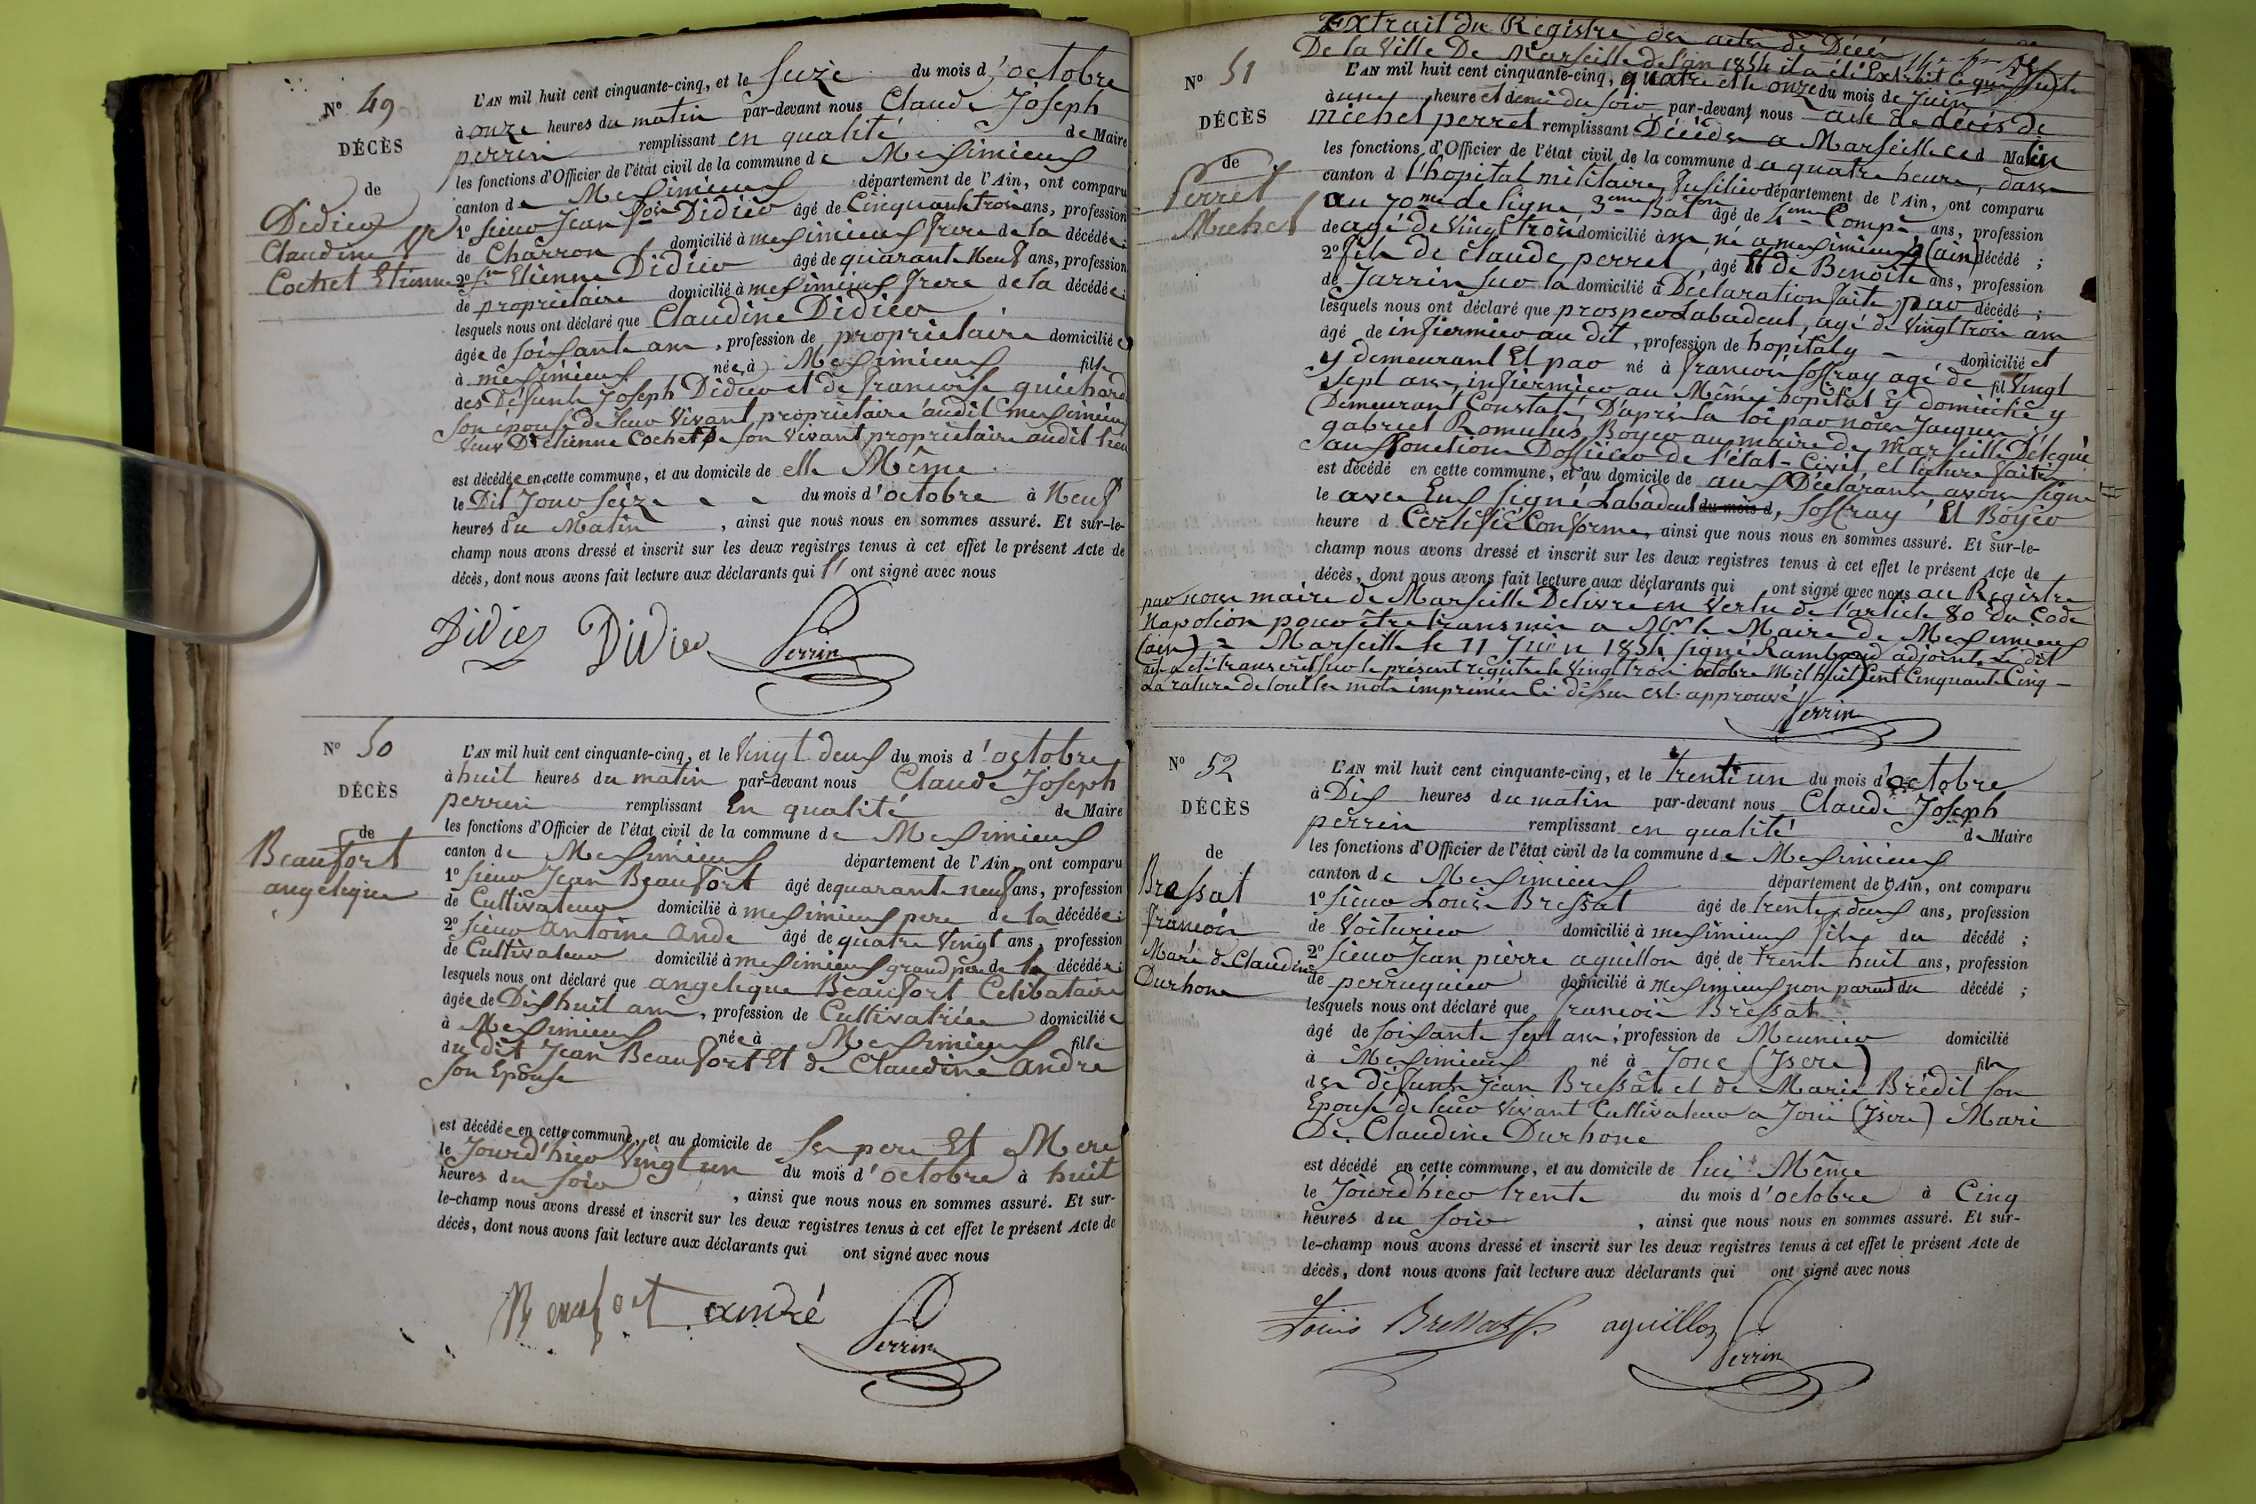 N° 49
DÉCÈS
de
Didier
Claudine Ve
Cochet Etienne
L'AN mil huit cent cinquante-cinq, et le Seize du mois d'octobre
à onze heures du matin par-devant nous Claude Joseph
perrin remplissant en qualité de Maire
les fonctions d'Officier de l'état civil de la commune de Meximieux
canton de Meximieux département de l'Ain, ont comparu
1° Sieur Jean fois Didier âgé de Cinquante trois ans, profession
de Charron domicilié à meximieux frere de la décédée
2° Sr Etienne Didier âgé de quarante Neuf ans, profession
de proprietaire domicilié à meximieux frere de la décédée;
lesquels nous ont déclaré que Claudine Didier
âgée de soixante ans, profession de proprietaire domiciliée
à meximieux née à Meximieux fille
des Défunts Joseph Didier et de françoise guichard
son épouse de leur Vivant proprietaire audit meximieux
Veuve D'etienne Cochet de son Vivant proprietaire audit lieu
est décédée en cette commune, et au domicile de elle Même
le Dit Jour Seize du mois d'octobre à Neuf
heures du Matin, ainsi que nous nous en sommes assuré. Et sur-le-
champ nous avons dressé et inscrit sur les deux registres tenus à cet effet le présent Acte de
décès, dont nous avons fait lecture aux déclarants qui ont signé avec nous
Didier Didier Perrin
N° 50
DÉCÈS
de
Beaufort
angelique
L'AN mil huit cent cinquante-cinq, et le Vingt deux du mois d'octobre
à huit heures du matin par-devant nous Claude Joseph
perrin remplissant En qualité de Maire
les fonctions d'Officier de l'état civil de la commune de Meximieux
canton de Meximieux département de l'Ain, ont comparu
1° Sieur Jean Beaufort âgé de quarante neuf ans, profession
de Cultivateur domicilié à meximieux pere de la décédée;
2° Sieur Antoine Andé âgé de quatre Vingt ans, profession
de Cultivateur domicilié à meximieux grand père de la décédée;
lesquels nous ont déclaré que angelique Beaufort Celibataire
âgée de Dix huit ans, profession de Cultivatrice domiciliée
à Meximieux née à Meximieux fille
du dit Jean Beaufort Et de Claudine André
son Epouse
est décédée en cette commune, et au domicile de Ses pere Et Mere
le Jourd'hier Vingt un du mois d'octobre à huit
heures du soir, ainsi que nous nous en sommes assuré. Et sur-
le-champ nous avons dressé et inscrit sur les deux registres tenus à cet effet le présent Acte de
décès, dont nous avons fait lecture aux déclarants qui ont signé avec nous
Beaufort andré Perrin
Extrait du Registre des actes de Décès
De la Ville De Marseille de l'an 1854 il a été Extrait ce qui suit
N° 51
DÉCÈS
de
Perret
Michel
L'AN mil huit cent cinquante-cinq, quatre et le onze du mois de Juin
à une heure et demi du soir par-devant nous acte de décès de
michel perret remplissant Décédé a Marseille ce d Matin
les fonctions d'Officier de l'état civil de la commune d a quatre heure, dans
canton d l'hopital militaire, fusilier département de l'Ain, ont comparu
au 70me de ligne 3eme Baton âgé de 4eme Compe ans, profession
de agé de Vingt trois domicilié à ans né a meximieux (ain) décédé;
2° fils de claude perret, âgé Et de Benoite ans, profession
de Jarrin sur la domicilié à Déclaration faite par décédé;
lesquels nous ont déclaré que prosper Labadeut, agé de Vingt trois ans
âgé de infirmier au dit, profession de hopital y domicilié et
y demeurant Et par né à francois soffray agé de fil Vingt
sept ans, infirmier au Même hopital y domicilié y
Demeurant Constaté D'après la loi par nous Jacques
gabriel Romulus Boyer au maire de Marseille Délégué
aux fonctions D'officier de l'état-Civil, et lecture faite
est décédé en cette commune, et au domicile de aux Déclarants avons signé
le avec Eux signé Labadeut du mois d, soffray Et Boyer
heure d Certifié Conforme, ainsi que nous nous en sommes assuré. Et sur-le-
champ nous avons dressé et inscrit sur les deux registres tenus à cet effet le présent Acte de
décès, dont nous avons fait lecture aux déclarants qui ont signé avec nous au Registre
par nous maire de Marseille Délivré en Vertu de l'article 80 du Code
Napoléon pour être transmis a Mr le Maire de Meximieux
(ain) Marseille le 11 Juin 1854 signé Rambaud adjoint, Le dit
acte a été transcrit sur le présent registre le Vingt trois octobre Mil huit Cent Cinquante Cinq
La rature de tout les mots imprimés Ci dessus est approuvé
Perrin
N° 52
DÉCÈS
de
Bressat
francois
Mari de Claudine
Durhone
L'AN mil huit cent cinquante-cinq, et le trente un du mois d'octobre
à Dix heures du matin par-devant nous Claude Joseph
perrin remplissant en qualité de Maire
les fonctions d'Officier de l'état civil de la commune de Meximieux
canton de Meximieux département de l'Ain, ont comparu
1° Sieur Louis Bressat âgé de trente deux ans, profession
de Voiturier domicilié à meximieux fils du décédé;
2° Sieur Jean pierre aguillon âgé de trente huit ans, profession
de perruquier domicilié à meximieux non parent du décédé;
lesquels nous ont déclaré que francois Bressat
âgé de soixante sept ans, profession de Meunier domicilié
à Meximieux né à Jone (Isere) fils
des défunts Jean Bressat et de Marie Brédit son
Epouse de leur Vivant Cultivateur a Jone (Isere) Mari
De Claudine Durhone
est décédé en cette commune, et au domicile de lui Même
le Jourd'hier trente du mois d'octobre à Cinq
heures du soir, ainsi que nous nous en sommes assuré. Et sur-
le-champ nous avons dressé et inscrit sur les deux registres tenus à cet effet le présent Acte de
décès, dont nous avons fait lecture aux déclarants qui ont signé avec nous
Louis Bressat aguillon Perrin